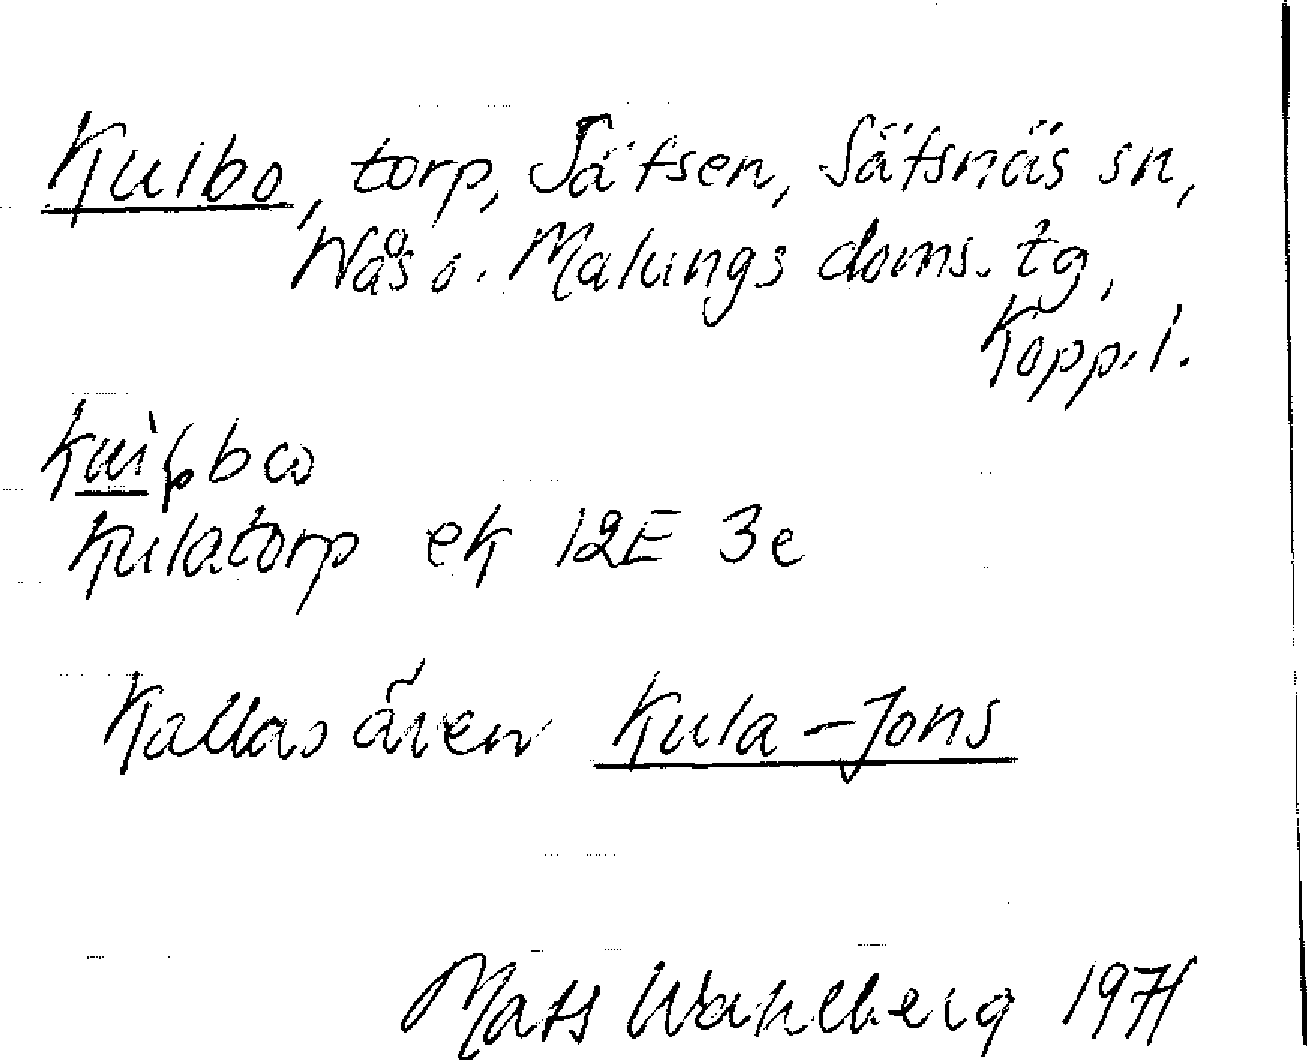 Kulbo, torp, Jätsen, Säfsnäs sn,
Nås o. Malungs doms. tg,
Kopp. l.
Kulatorp ek 12E 3e
Kallas även Kula-Jons
Mats Wahlberg 1971